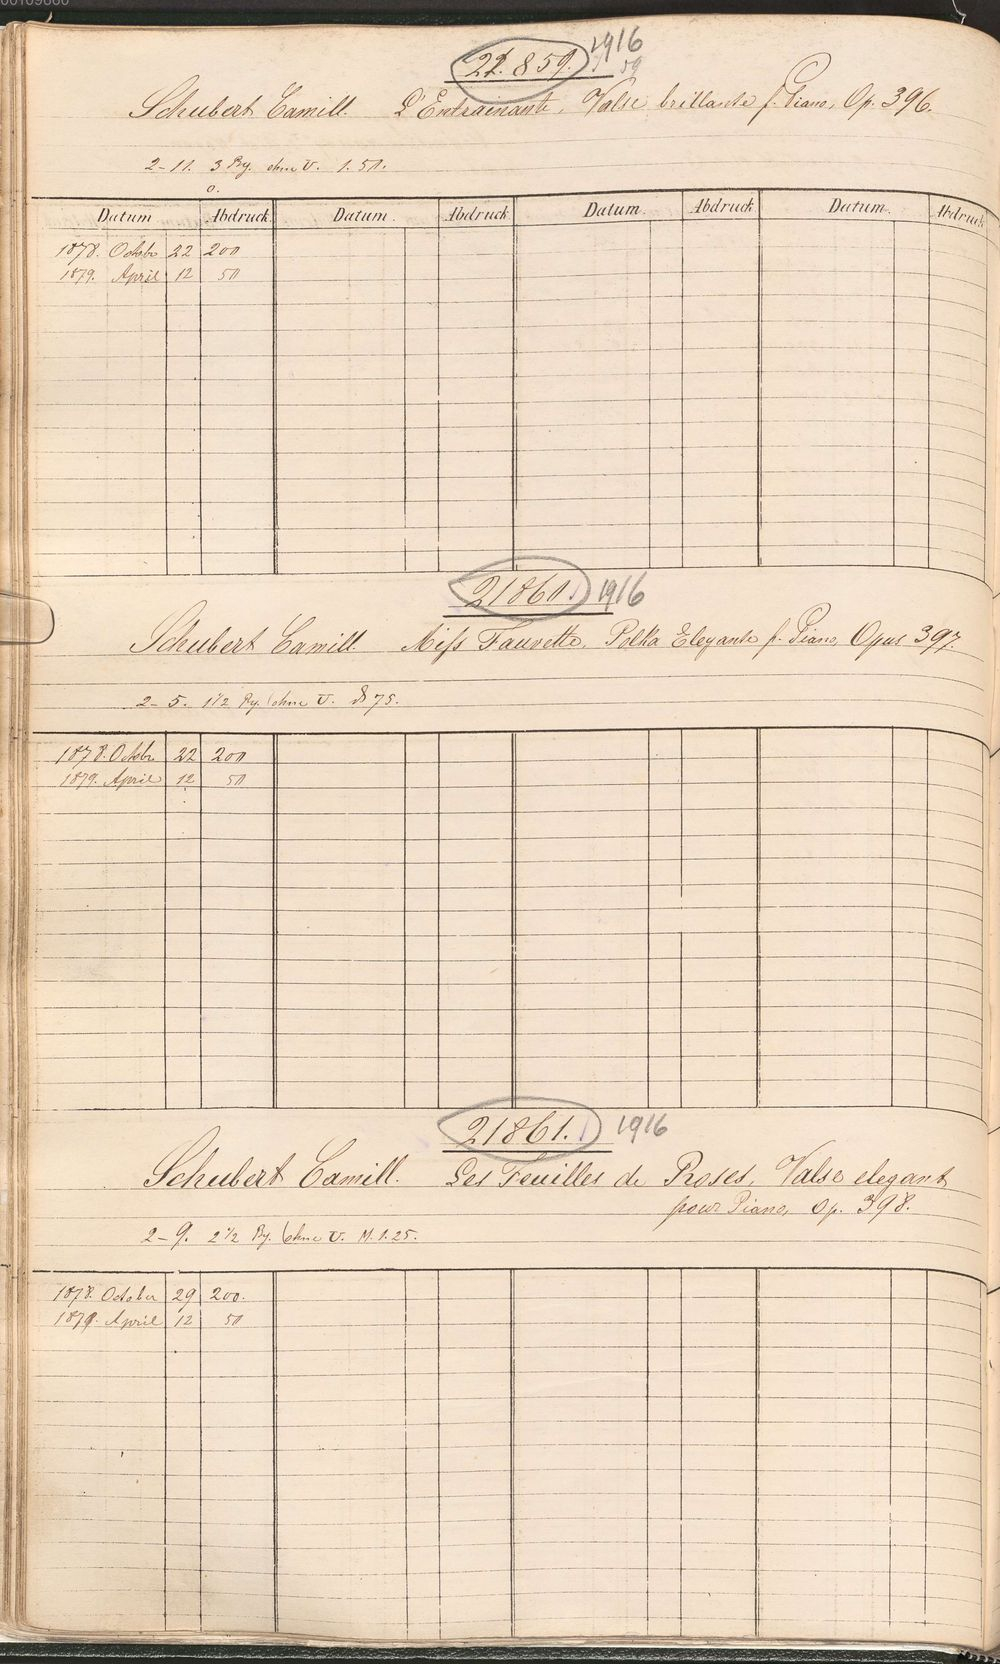 22.859. 1916
59
Schubert Camill. L'Entrainante, Valse brillante f. Piano, Op. 396.
2-11. 3 Bg. ohne V. 1.50.
0.
Datum Abdruck Datum. Abdruck Datum. Abdruck Datum. Abdruck
1878. Octobr 22 200
1879. April 12 50
21860. 1916
Schubert Camill. Miss Fauvette, Polka Elegante f. Piano, Opus 397.
2-5. 1 1/2 Bg. ohne V. 75.
1878. Octobr 22 200
1879. April 12 50
21861. 1916
Schubert Camill. Les Feuilles de Roses, Valse elegant
pour Piano, Op. 398.
2-9. 2 1/2 Bg. ohne V. M. 1.25.
1878. October 29 200.
1879. April 12 50